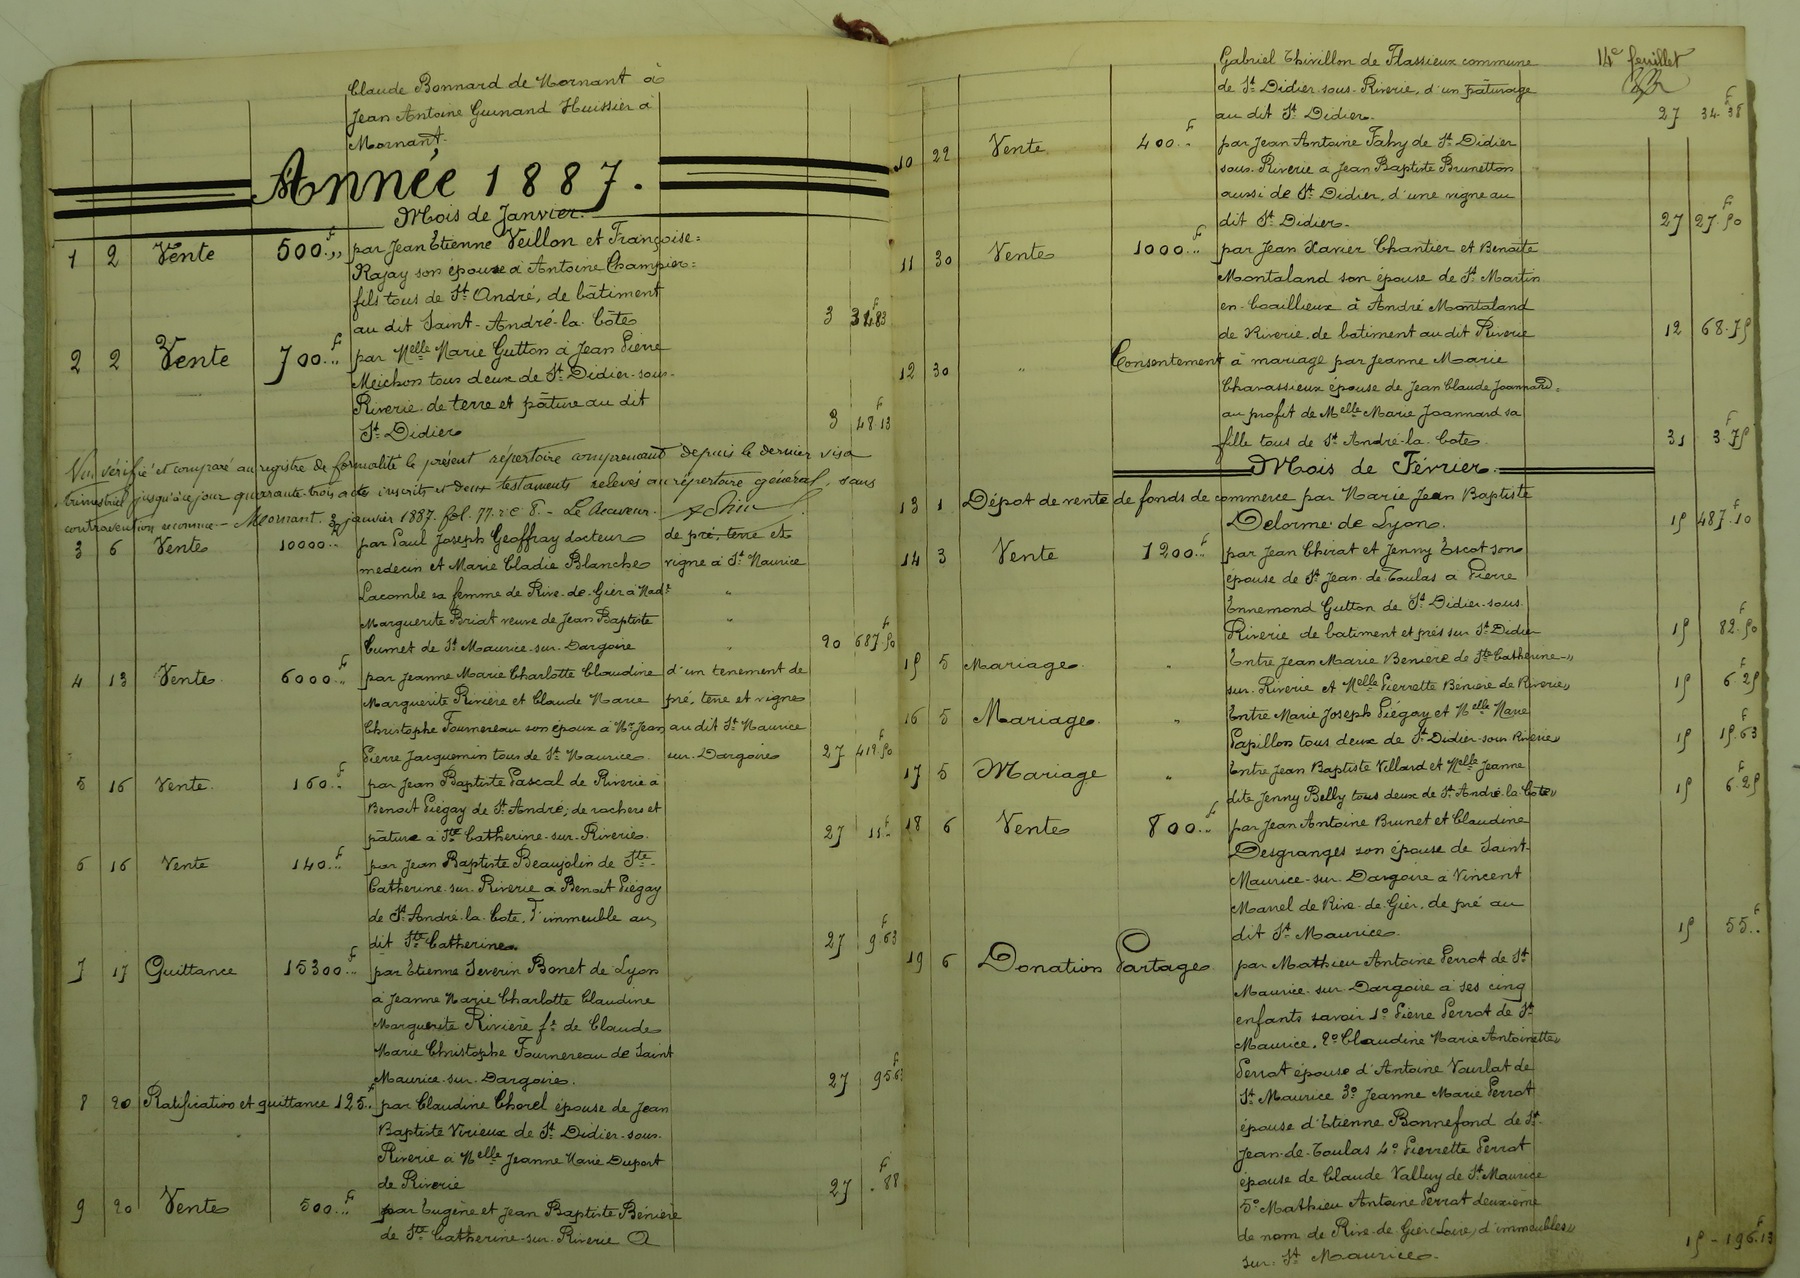 Claude Bonnard de Mornant à
Jean Antoine Guinand Huissier à
Mornant.
Année 1887.
Mois de Janvier.
1 2 Vente 500.F,, par Jean Etienne Veillon et Françoise=
Rajay son épouse à Antoine Champier=
fils tous de St André, de bâtiment
au dit Saint-André-la-Côte 3 34.83
2 2 Vente 700.F.. par Melle Marie Gutton à Jean Pierre
Meichon tous deux de St Didier-sous-
Riverie de terre et pâture au dit
St Didier 3 48.F13
Vu, vérifié et comparé au registre de formalité le présent répertoire comprenant depuis le dernier visa
trimestriel jusqu'à ce jour quarante-trois actes inscrits et deux testaments relevés au répertoire général, sans
contravention reconnue.- Mornant. 3 janvier 1887. fol. 77. r c 8.- Le Receveur.
3 6 Vente 10000.F.. par Paul Joseph Geoffray docteur de pré, terre et
medecin et Marie Cladie Blanche vigne à St Maurice
Lacombe sa femme de Rive-de-Gier à Made "
Marguerite Briat veuve de Jean Baptiste "
Cumet de St Maurice-sur-Dargoire " 20 687.F50
4 13 Vente 6000.F.. par Jeanne Marie Charlotte Claudine d'un tenement de
Marguerite Rivière et Claude Marie pré, terre et vigne
Christophe Fournereau son époux à Mr Jean au dit St Maurice
Pierre Jacquemin tous de St Maurice. sur-Dargoire 27 412.F50
5 16 Vente. 160.F.. par Jean Baptiste Pascal de Riverie à
Benoit Piégay de St André, de rochers et
pâture à Ste Catherine-sur-Riverie. 27 11F..
6 16 Vente 140.F.. par Jean Baptiste Beaujolin de Ste-
Catherine-sur-Riverie à Benoit Piégay
de St André-la-Cote, d'immeuble au
dit Ste Catherine. 27 9.F63
7 17 Quittance 15300.F.. par Etienne Severin Bonet de Lyon
à Jeanne Marie Charlotte Claudine
Marguerite Rivière fe de Claude
Marie Christophe Fournereau de Saint
Maurice-sur-Dargoire. 27 95.F63
8 20 Ratification et quittance 125.F.. par Claudine Chorel épouse de Jean
Baptiste Virieux de St Didier-sous-
Riverie à Melle Jeanne Marie Duport
de Riverie 27 .F88
9 20 Vente 500.F.. par Eugène et Jean Baptiste Bénière
de Ste Catherine-sur-Riverie à
14e feuillet
Gabriel Thivillon de Flassieux commune
de St Didier-sous-Riverie, d'un pâturage
au dit St Didier. 27 34.F38
10 22 Vente 400.F.. par Jean Antoine Fahy de St Didier
sous-Riverie à Jean Baptiste Brunetton
aussi de St Didier, d'une vigne au
dit St Didier. 27 27.F50
11 30 Vente 1000.F.. par Jean Xavier Chantier et Benoite
Montaland son épouse de St Martin
en-Coaillieux à André Montaland
de Riverie de batiment au dit Riverie 12 68.75
12 30 " Consentement à mariage par Jeanne Marie
Chavassieux épouse de Jean Claude Joannard=
au profit de Melle Marie Joannard sa
fille tous de St André-la-Cote. 31 3.F75
Mois de Février.
13 1 Dépot de vente de fonds de commerce par Marie Jean Baptiste
Delorme de Lyon. 15 487.F10
14 3 Vente 1200.F.. par Jean Chirat et Jenny Escot son
épouse de St Jean-de-Toulas à Pierre
Ennemond Gutton de St Didier-sous-
Riverie de batiment et prés sur St Didier 15 82.F50
15 5 Mariage " Entre Jean Marie Benière de Ste Catherine-"
sur-Riverie et Melle Pierrette Bénière de Riverie" 15 6.F25
16 5 Mariage. " Entre Marie Joseph Piégay et Melle Marie
Papillon tous deux de St Didier-sous-Riverie" 15 15.F63
17 5 Mariage " Entre Jean Baptiste Villard et Melle Jeanne
dite Jenny Belly tous deux de St André-la-Cote" 15 6.F25
18 6 Vente 800.F.. par Jean Antoine Brunet et Claudine
Desgranges son épouse de Saint-
Maurice-sur-Dargoire à Vincent
Marrel de Rive-de-Gier, de pré au
dit St Maurice. 15 55.F..
19 6 Donation Partage par Mathieu Antoine Perrot de St
Maurice-sur-Dargoire à ses cinq
enfants savoir 1o Pierre Perrot de St
Maurice, 2o Claudine Marie Antoinette"
Perrot épouse d'Antoine Vourlat de
St Maurice 3o Jeanne Marie Perrot
épouse d'Etienne Bonnefond de St-
Jean-de-Toulas 4o Pierrette Perrot
épouse de Claude Valluy de St Maurice
5o Mathieu Antoine Perrot deuxième
de nom de Rive-de-Gier (Loire) d'immeubles"
sur St Maurice. 15 - 196.F13